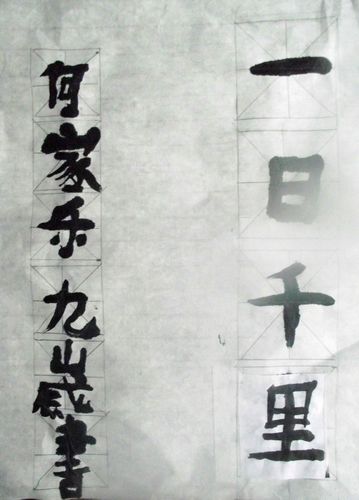 一日千里
何家乐九岁书